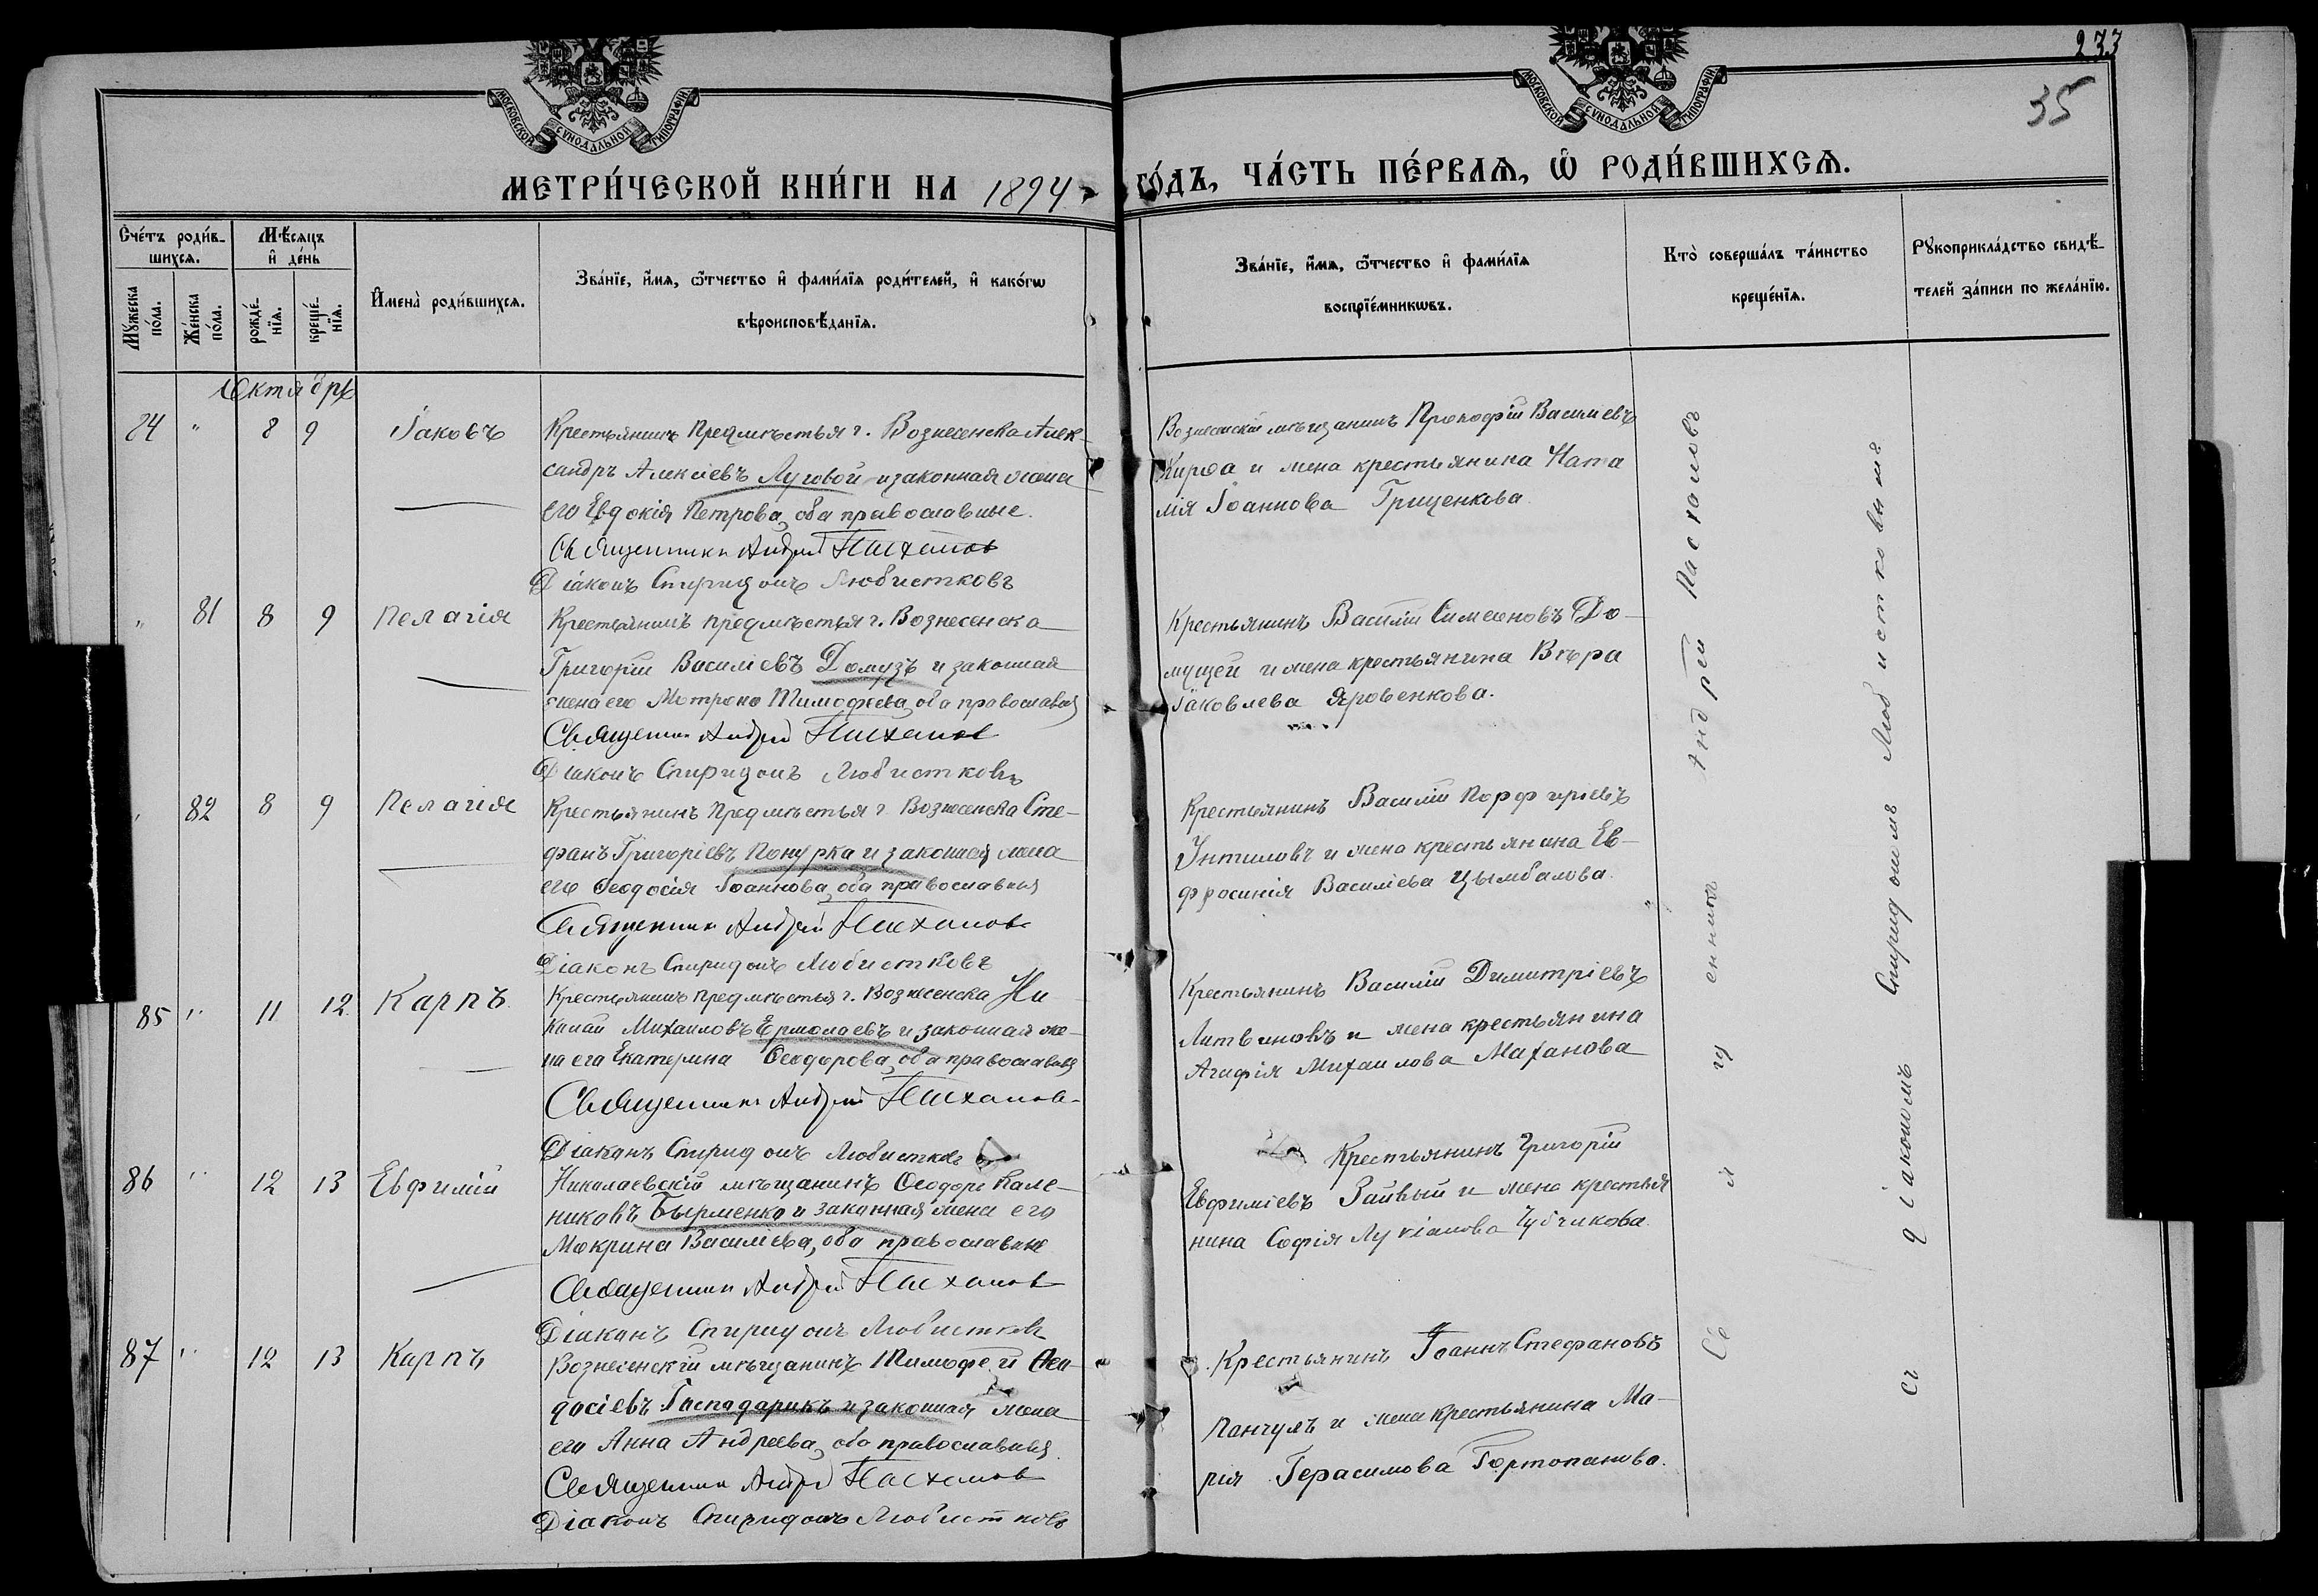 МОСКОВСКОЙ СѴНОДАЛЬНОЙ ТИПОГРАФІИ
МОСКОВСКОЙ СѴНОДАЛЬНОЙ ТИПОГРАФІИ
233
35
МЕТРИ́ЧЕСКОЙ КНИ́ГИ НА 1894 ГО́ДЪ, ЧА́СТЬ ПЕ́РВАѦ, Ѿ РОДИ́ВШИХСѦ.
Сче́тъ роди́в-
шихсѧ.
Мѣ́сѧцъ
и҆ де́нь
Мꙋ́жеска
по́ла.
Же́нска
по́ла.
рожде́-
нїѧ.
креще́-
нїѧ.
И҆мена̀ роди́вшихсѧ.
Зва́нїе, и҆́мѧ, ѻ҆́тчество и҆ фами́лїѧ роди́телей, и҆ како́гѡ
вѣроисповѣ́данїѧ.
Зва́нїе, и҆́мѧ, ѻ҆́тчество и҆ фами́лїѧ
воспрїе́мникѡвъ.
Кто̀ соверша́лъ та́инство
креще́нїѧ.
Рꙋкоприкла́дство свидѣ́-
телей за́писи по жела́нїю.
Октябрь
84 " 8 9 Іаковъ
Крестьянинъ предмѣстья г. Вознесенска Алек-
сандръ Алексіевъ Луговой и законная жена
его Евдокія Петрова, оба православные.
Священникъ Андрей Пасхаловъ
Діаконъ Спиридонъ Любистковъ
Вознесенскій мѣщанинъ Прокофій Василіевъ
Кирса и жена крестьянина Ната
лія Іоаннова Гриценкова.
" 81 8 9 Пелагія
Крестьянинъ предмѣстья г. Вознесенска
Григорій Василіевъ Домузъ и законная
жена его Матрона Тимофеева, оба православныя
Священникъ Андрей Пасхаловъ
Діаконъ Спиридонъ Любистковъ
Крестьянинъ Василій Симеоновъ До-
мущей и жена крестьянина Вѣра
Іаковлева Яровенкова.
" 82 8 9 Пелагія
Крестьянинъ предмѣстья г. Вознесенска Сте-
фанъ Григоріевъ Понурка и законная жена
его Ѳеодосія Іоаннова, оба православныя
Священникъ Андрей Пасхаловъ
Діаконъ Спиридонъ Любистковъ
Крестьянинъ Василій Порфиріевъ
Унтиловъ и жена крестьянина Ев-
фросинія Василіева Цымбалова.
85 " 11 12 Карпъ
Крестьянинъ предмѣстья г. Вознесенска Ни
колай Михаиловъ Ермолаевъ и законная же-
на его Екатерина Ѳеодорова, оба православныя
Священникъ Андрей Пасхаловъ
Діаконъ Спиридонъ Любистковъ
Крестьянинъ Василій Димитріевъ
Литвиновъ и жена крестьянина
Агафія Михаилова Маханова
86 " 12 13 Евфимій
Николаевскій мѣщанинъ Ѳеодоръ Кале-
никовъ Бырменко и законная жена его
Макрина Василіева, оба православныя
Священникъ Андрей Пасхаловъ
Діаконъ Спиридонъ Любистковъ
Крестьянинъ Григорій
Евфиміевъ Зайвый и жена крестья
нина Софія Лукіанова Чубчикова.
87 " 12 13 Карпъ
Вознесенскій мѣщанинъ Тимофей Ѳео-
досіевъ Господарикъ и законная жена
его Анна Андреева, оба православныя.
Священникъ Андрей Пасхаловъ
Діаконъ Спиридонъ Любистковъ
Крестьянинъ Іоаннъ Стефановъ
Панчулъ и жена крестьянина Ма-
рія Герасимова Гортопанова.
Священникъ Андрей Пасхаловъ
съ діакономъ Спиридономъ Любистковымъ